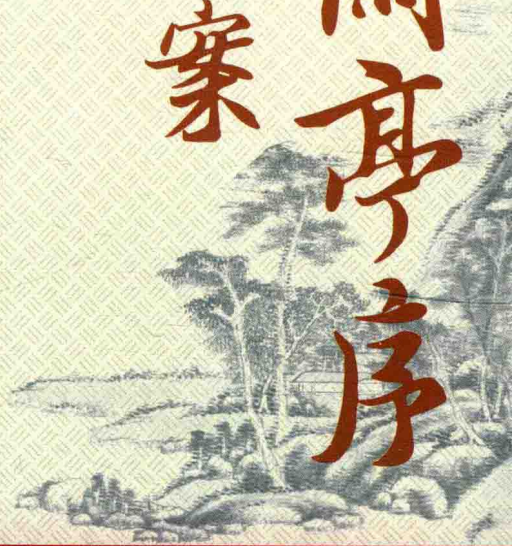 亭序
案